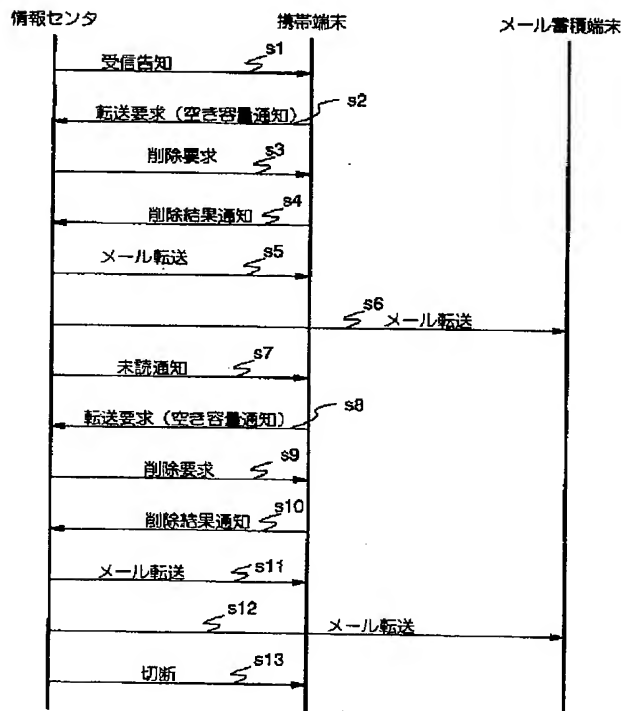 情報センタ 携帯端末 メール蓄積端末
s1
受信告知
s2
転送要求（空き容量通知）
s3
削除要求
s4
削除結果通知
s5
メール転送
s6
メール転送
s7
未読通知
s8
転送要求（空き容量通知）
s9
削除要求
s10
削除結果通知
s11
メール転送
s12
メール転送
s13
切断